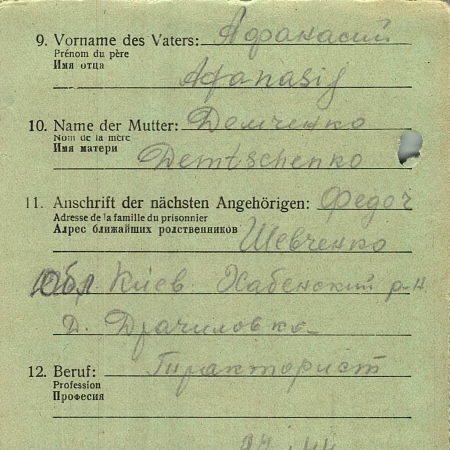 9. Vorname des Vaters: Афанасий
Prénom du père
Имя отца
Afanasij
10. Name der Mutter: Демченко
Nom de la mère
Имя матери
Demtschenko
11. Anschrift der nächsten Angehörigen: Федор
Adresse de la famille du prisonnier
Алрес ближайших ролственников Шевченко
Обл Киев. Хабенский р-н
д. Драчиловка
12. Beruf: Тракторист
Profession
Професия